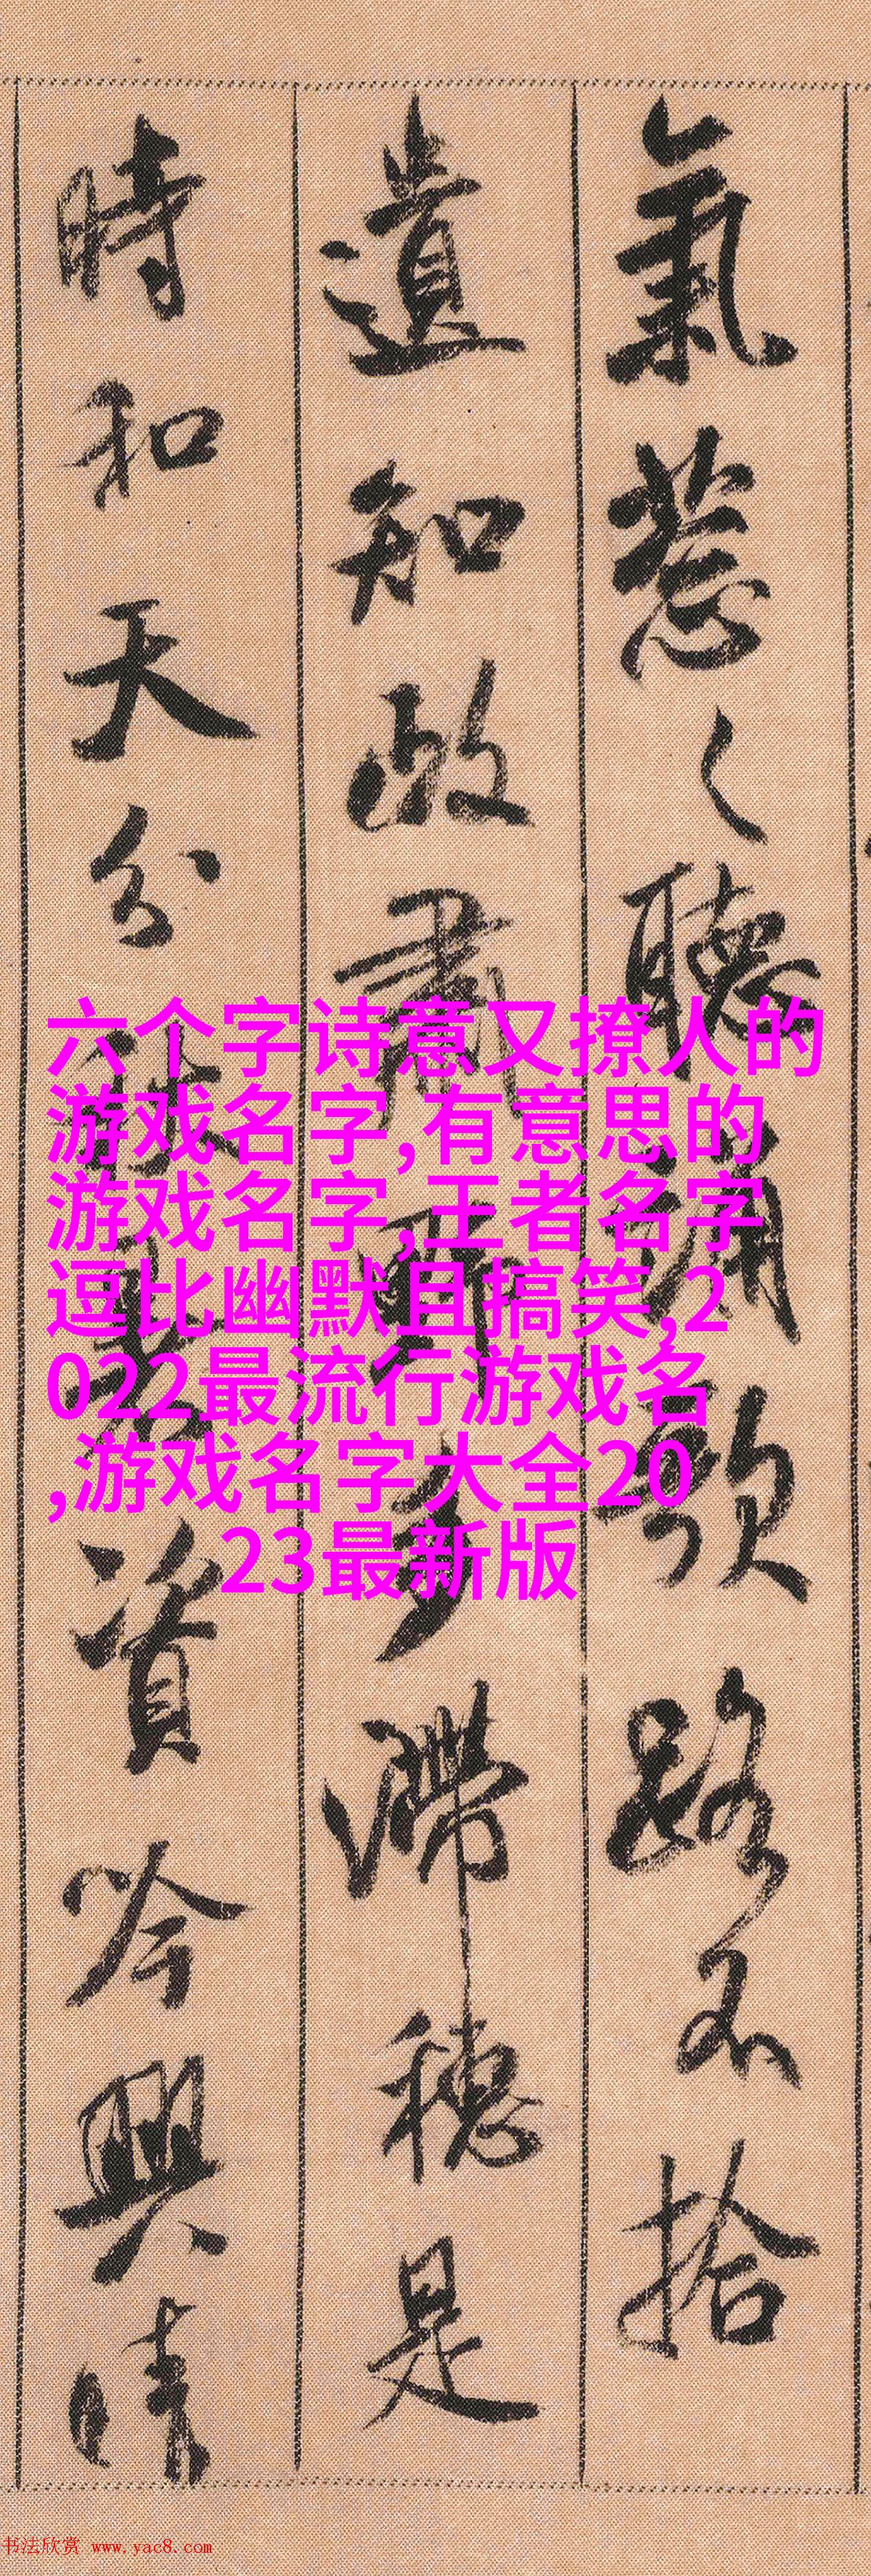 氣葱々聽謳歌路不拾
遺知政肅野多滯穗是
時和天分秋暑資吟興晴
六个字诗意又撩人的
游戏名字,有意思的
游戏名字,王者名字
逗比幽默且搞笑,2
022最流行游戏名
,游戏名字大全20
23最新版
书法欣赏 www.yac8.com